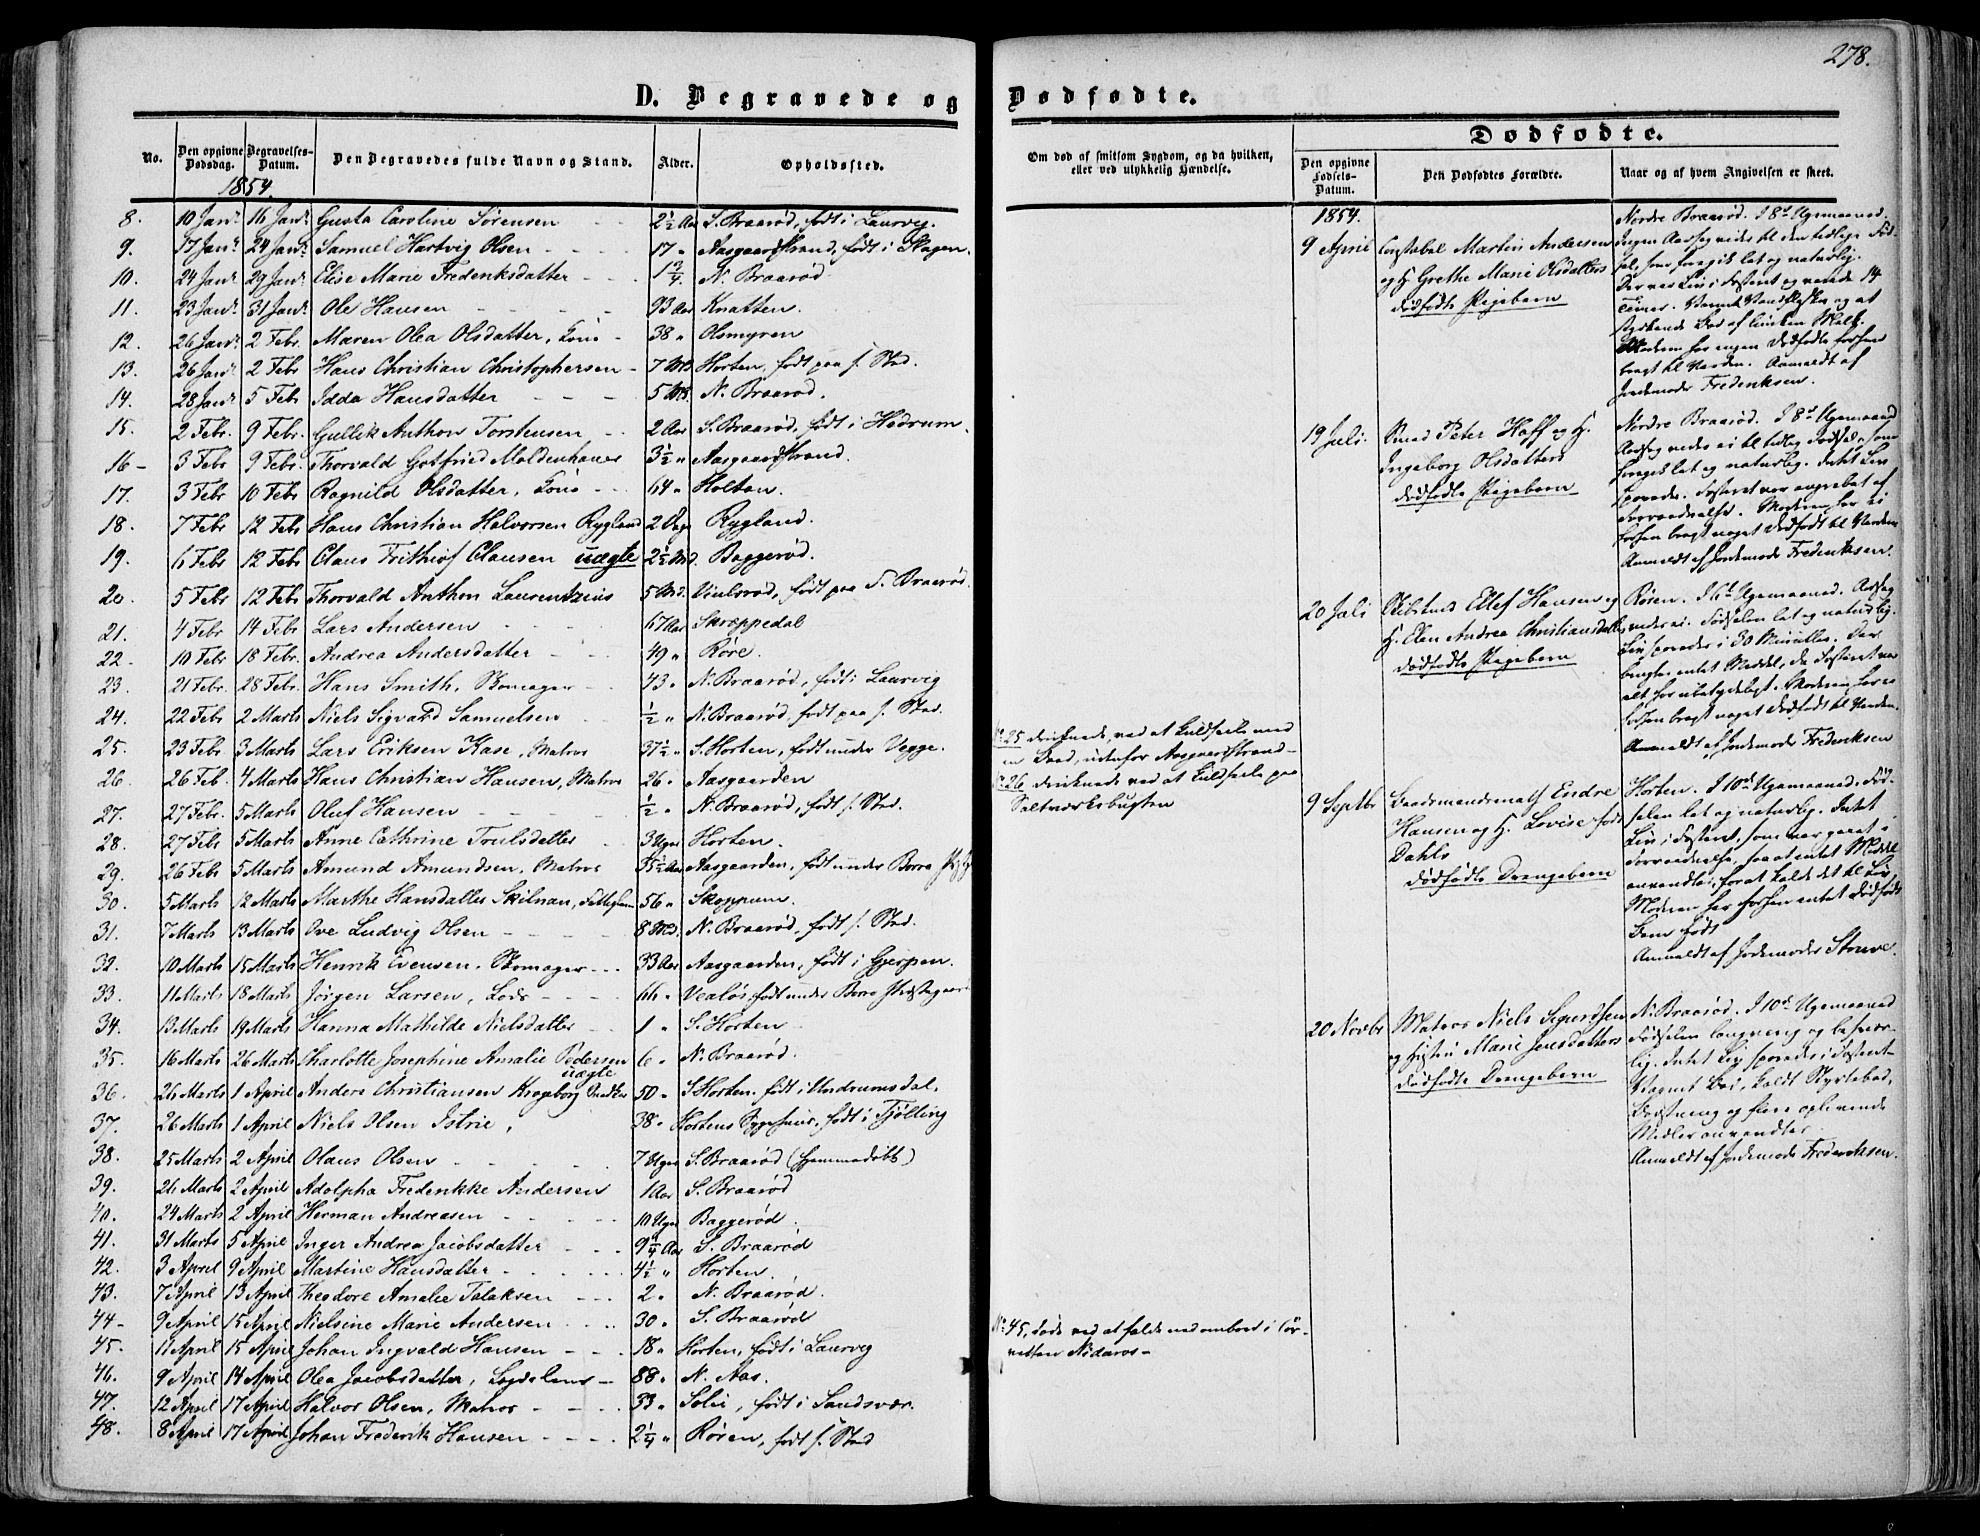 278.
D. Begravede og Dødfødte.
No.
Den opgivne Dødsdag.
Begravelses-Datum.
Den Begravedes fulde Navn og Stand.
Alder.
Opholdssted.
1854.
8. 10 Janr. 16 Janr. Gusta Caroline Sørensen 2½ Aar S. Braarød, født i Laurvig.
9. 17 Janr. 24 Janr. Samuel Hartvig Olsen 17 " Aasgaardstrand, født i Skagen.
10. 24 Janr. 29 Janr. Elise Marie Frederiksdatter N. Braarød
11. 23 Janr. 31 Janr. Ole Hansen 93 Aar Knatten.
12. 26 Janr. 2 Febr. Maren Olea Olsdatter, Kone 38 " Olsmyren
13. 26 Janr. 2 Febr Hans Christian Christophersen 7 Md Horten, født paa s. Sted.
14. 28 Janr. 5 Febr Idda Hansdatter 5 Md. N. Braarød.
15. 2 Febr. 9 Febr. Gullik Anthon Torstensen 2 Aar S. Braarød, født i Hedrum.
16 - 3 Febr 9 Febr. Thorvald Gotfried Moldenhauer 3½ " Aasgaardstrand.
17. 3 Febr 10 Febr Ragnild Olsdatter, Kone 64 " Holtan.
18. 7 Febr 12 Febr Hans Christian Halvorsen Rygland 2 Dage Rygland.
19. 6 Febr 12 Febr Claus Frithiof Clausen uægte 2½ Md. Baggerød.
20. 5 Febr 12 Febr Thorvald Anthon Laurentzius 5 Md. Viulsrød, født paa S. Braarød.
21. 4 Febr 14 Febr Lars Andersen 67 Aar Skroppedal
22 - 10 Febr 18 Febr. Andrea Andersdatter 49 " Røre.
23. 21 Febr. 28 Febr. Hans Smith, Skomager 43 " N. Braarød, født i Laurvig
24. 22 Febr 2 Marts Niels Sigvard Samuelsen ½ " N. Braarød, født paa s. Sted.
25. 23 Febr. 3 Marts Lars Eriksen Kase, Matros 37½ " S. Horten, født under Vegge.
26. 26 Feb. 4 Marts Hans Christian Hansen, Matros 26 " Aasgaarden
27. 27 Febr. 5 Marts Oluf Hansen ½ " N. Braarød, født s. Sted.
28. 27 Febr 5 Marts Anne Cathrine Trulsdatter 3 Uger Horten.
29. 26 Febr 5 Marts Amund Amundsen, Matros 35½ Aar Aasgaarden, født under Borre
30. 5 Marts 12 Marts Marthe Hansdatter Skilnan, Fattiglem 56 " Skoppum.
31. 7 Marts 13 Marts Ove Ludvig Olsen 8 Md. N. Braarød, født s. Sted.
32. 10 Marts 15 Marts Henrik Evensen, Skomager 33 Aar Aasgaarden, født i Gjerpen.
33. 11 Marts 18 Marts Jørgen Larsen, Lods 66 " Vealøs, født under Borre Præstegaard
34. 13 Marts 19 Marts Hanna Mathilde Nielsdatter 1 " S. Horten
35. 16 Marts 26 Marts Charlotte Josephine Amalie Pedersen uægte 6 " N. Braarød.
36. 26 Marts 1 April Anders Christiansen Krogeborg Snedker 50 " S. Horten, født i Undrumsdal.
37. 26 Marts 1 April Niels Olsen Istrie, 38 " Hortens Sygehuus, født i Tjølling
38. 25 Marts 2 April Olaus Olsen 7 Uger S. Braarød (Hjemmedøbt)
39. 26 Marts 2 April Adolpha Frederikke Andersen 1 Aar S. Braarød
40. 24 Marts 2 April Herman Andreasen 10 Uger Baggerød.
41. 31 Marts 5 April Inger Andrea Jacobsdatter 9¼ Aar S. Braarød
42. 3 April 9 April Martine Hansdatter 4½ " Horten.
43. 7 April 13 April Theodore Amalie Falaksen 2 " N. Braarød.
44 - 9 April 15 April Nielsine Marie Andersen 30 " S. Braarød
45. 11 April 15 April Johan Ingvald Hansen 18 " Horten, født i Laurvig
46. 9 April 14 April Olea Jacobsdatter, Lægdslem 88 " N. Aas.
47. 12 April 17 April Halvor Olsen, Matros 33 " Solie, født i Sandsvær.
48. 8 April 17 April Johan Frederik Hansen 2¼ " Røren, født s. Sted
Om død af smitsom Sygdom, og da hvilken, eller ved ulykkelig Hændelse.
No 25 druknede, ved at kuldseile med
en Baad, udenfor Aasgaardstrand -
No 26 druknede ved at kuldseile paa
Saltværksbugten
No 45, døde ved at falde ned ombord i Cor-
vetten Nidaros -
Dødfødte.
Den opgivne Fødsels-Datum.
Den Dødfødtes Forældre.
Naar og af hvem Angivelsen er skeet.
1854.
9 April
Constabel Martin Andersen
og H. Grethe Marie Olsdatters
dødfødte Pigebarn
Nordre Braarød. I 8de Ugemaaned.
Ingen Aarsag vides til den tidlige Fød-
sel, som foregik let og naturlig.
Der var Liv i Fosteret og varede 14
Timer. Varmt Vand, Æther og at
stænkende
Moderen har ingen Dødfødte forhen
bragt til Verden. Anmeldt af
Jordemoder Frederiksen.
19 Juli.
Smed Peter Hoff og H.
Ingeborg Olsdatters
dødfødte Pigebarn
Nordre Braarød. I 8de Ugemaaned
Aarsag vides ei til tidlig Fødsel, som
foregik let og naturlig. Intet Liv
sporedes. Fosteret var angrebet af
Forraadnelse. Moderen har ei
forhen bragt noget Dødfødt til Verden
Anmeldt af Jordemoder Frederiksen.
20 Juli
Ellef Hansen og
H. Elen Andrea Christiansdatters
dødfødte Pigebarn
Røren. I 6te Ugemaaned. Aarsag
vides ei. Fødselen let og naturlig.
Liv sporedes i 30 Minutter. Der
brugtes intet Middel, da Fosteret var
alt for ubetydeligt. Moderen har ei
forhen bragt noget Dødfødt til Verden.
Anmeldt af Jordemoder Frederiksen
9 Septbr
Baadsmandsmath Endre
Hansen og H. Lovise født
Dahls
dødfødte Drengebarn
Horten. I 10de Ugemaaned. Fød-
selen let og naturlig. Intet
Liv i Fosteret, som var gaaet i
Forraadnelse, saa at intet Middel
anvendtes for at kalde det til Liv,
Moderen har forhen intet Dødfødt
Barn født
Anmeldt af Jordemoder Struve.
20 Novbr
Matros Niels Sigurdsen
og Hustru Marie Jensdatters
dødfødte Drengebarn
N. Braarød. I 10de Ugemaaned
Fødselen langvarig og besvær-
lig. Intet Liv sporedes i Fosteret.
Varmt Bad, koldt Styrtebad,
Børstning og flere oplivende
Midler anvendtes.
Anmeldt af Jordemoder Frederiksen.